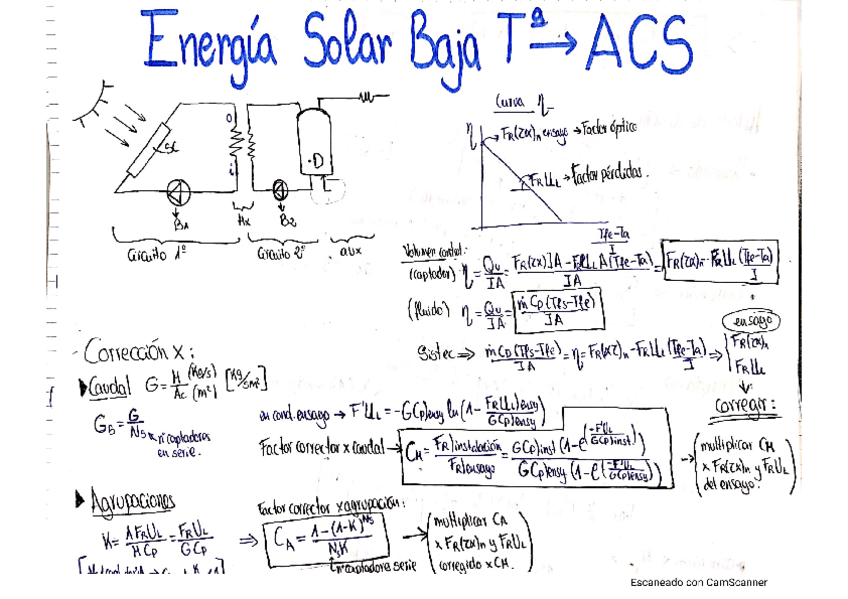 Energía Solar Baja Tª → ACS
SC
o
i
·D
B1
Hx
B2
Circuito 1º
Circuito 2º
aux
Curva η
η
FR(τα)n ensayo → Factor óptico
FRUL → Factor pérdidas.
Tfe-Ta
I
Volumen control:
(captador) η = Qu/IA = FR(τα)IA - FRUL A(Tfe-Ta)/IA = FR(τα)n - FRUL (Tfe-Ta)/I
(fluido) η = Qu/IA = ṁ Cp(Tfs-Tfe)/IA
ensayo
Sistec ⇒ ṁ Cp(Tfs-Tfe)/IA = η = FR(τα)n - FRUL (Tfe-Ta)/I ⇒ { FR(τα)n
FRUL
corregir:
- Corrección x:
▶ Caudal G = M (kg/s) / Ac (m²) [kg/sm²]
GB = G/Ns
nº captadores
en serie.
en cond. ensayo → F'UL = -GCp)ensy ln(1 - FRUL)ensy/GCp)ensy)
Factor corrector x caudal → CH = FR)instalación/FR)ensayo = GCp)inst (1-e(-F'UL/GCp)inst))/GCp)ensy (1-e(-F'UL/GCp)ensy))
→ (multiplicar CH
x FR(τα)n y FRUL
del ensayo.)
▶ Agrupaciones
Factor corrector x agrupación:
K = AFRUL/MCp = FRUL/GCp ⇒ CA = 1-(1-K)^Ns/NsK
nº captadores serie
→ (multiplicar CA
x FR(τα)n y FRUL
corregido x CH.)
Escaneado con CamScanner